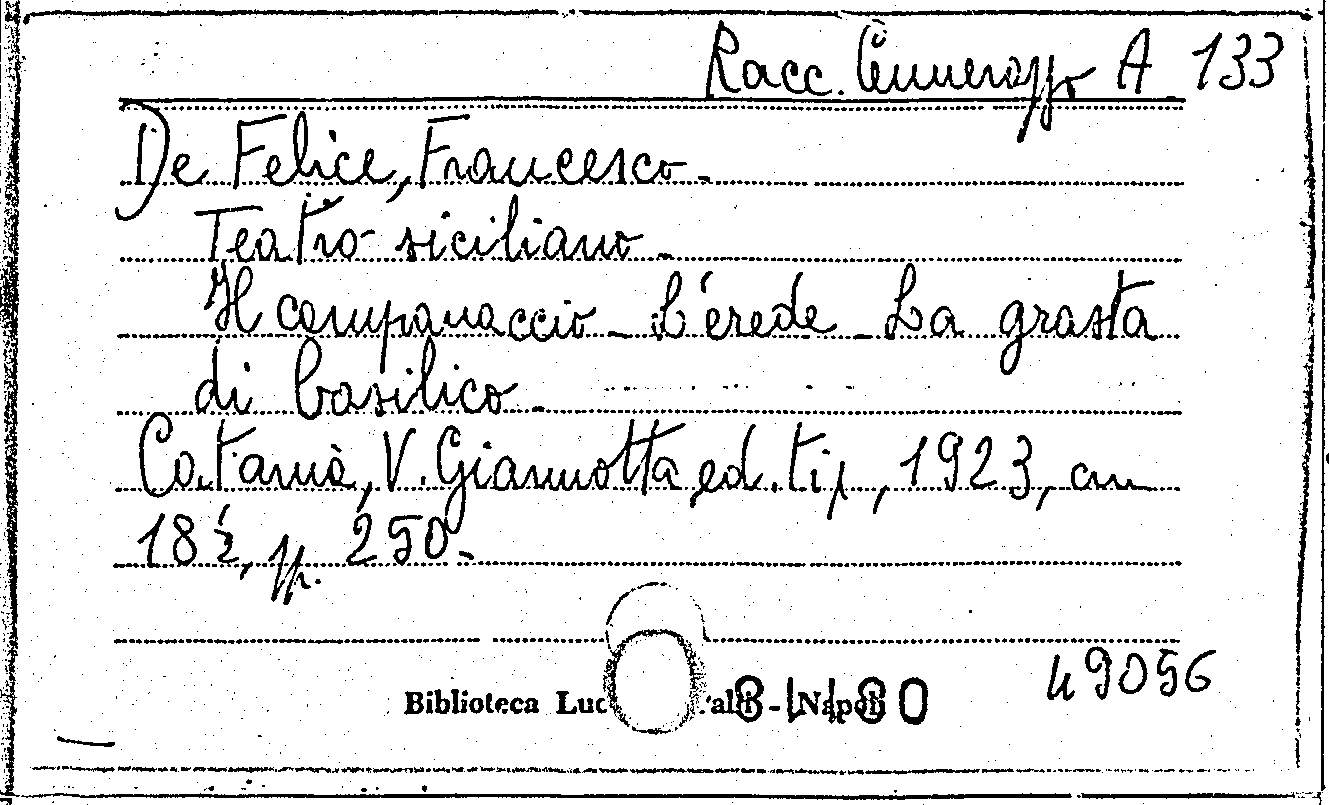 Racc. Cennerazzo A 133
De Felice, Francesco.
Teatro siciliano.
Il campanaccio - L'erede - La grasta
di basilico.
Catania, V. Giannotta, ed. tip, 1923, cm
18½, pp. 250.
49056
Biblioteca Luc
- Napoli